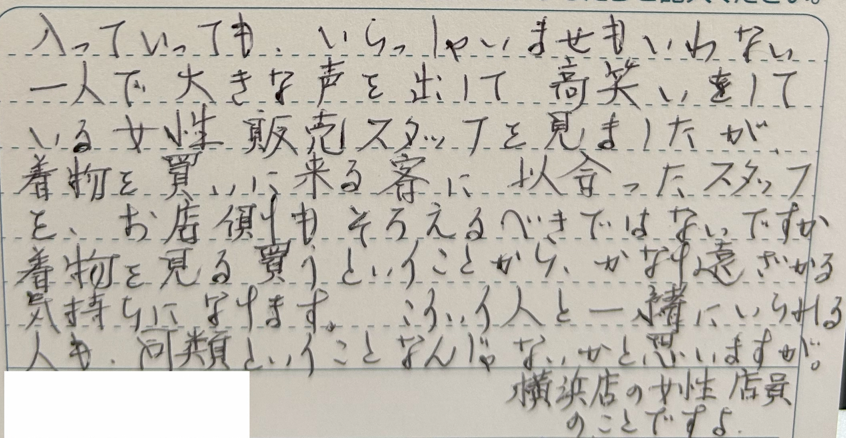 入っていっても、いらっしゃいませもいわない
一人で大きな声を出して高笑いをして
いる女性販売スタッフを見ましたが、
着物を買いに来る客に似合ったスタッフ
を、お店側もそろえるべきではないですか
着物を見る買うということから、かなり遠ざかる
気持ちになります。こういう人と一緒にいられる
人も、同類ということなんじゃないかと思いますが。
横浜店の女性店員
のことですよ.